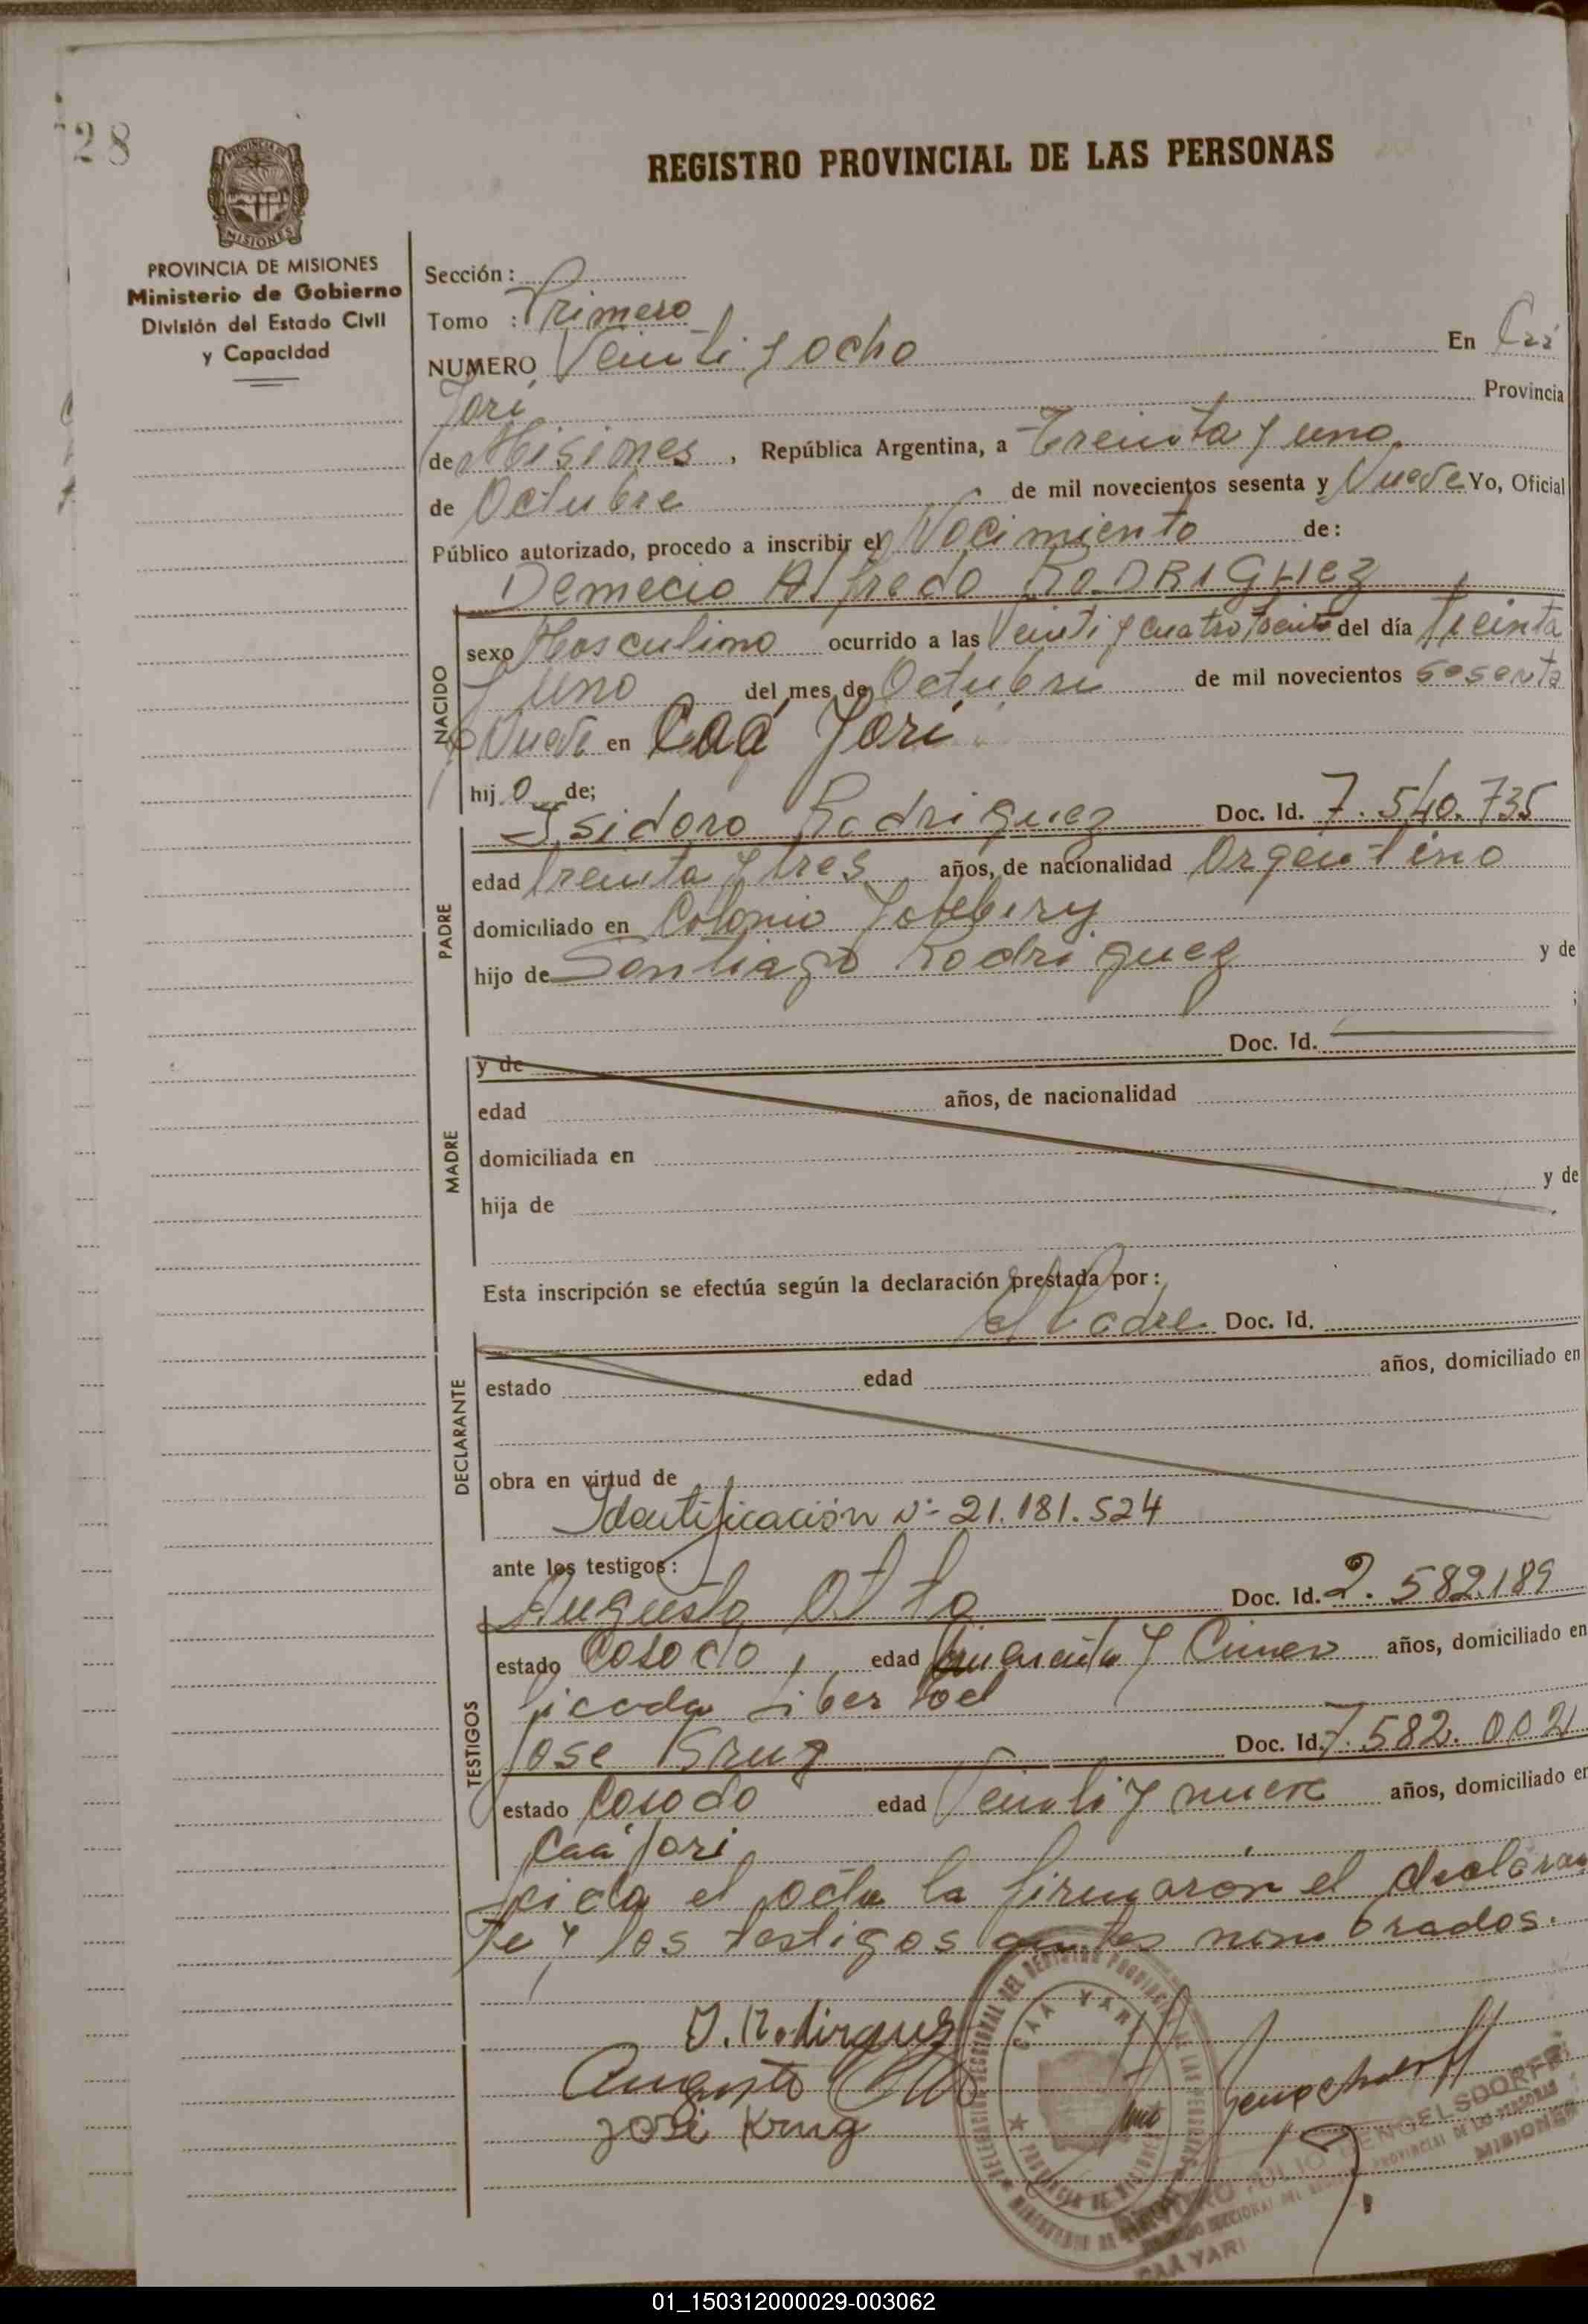 28
REGISTRO PROVINCIAL DE LAS PERSONAS
PROVINCIA DE MISIONES
MISIONES
PROVINCIA DE MISIONES
Ministerio de Gobierno
División del Estado Civil
y Capacidad
Sección :
Tomo : Primero
NUMERO Veinti y ocho En Caá
Yari Provincia
de Misiones , República Argentina, a treinta y uno
de Octubre de mil novecientos sesenta y Nueve Yo, Oficial
Público autorizado, procedo a inscribir el Nacimiento de :
Demecio Alfredo RODRIGUEZ
NACIDO
sexo Masculino ocurrido a las Veinti y cuatro del día treinta
y uno del mes de Octubre de mil novecientos sesenta
y Nueve en Caá Yari
hij o de;
PADRE
Isidoro Rodriguez Doc. Id. 7.540.735
edad treinta y tres años, de nacionalidad Argentino
domiciliado en Colonia
hijo de Santiago Rodriguez y de
;
MADRE
y de Doc. Id.
edad años, de nacionalidad
domiciliada en
hija de y de
Esta inscripción se efectúa según la declaración prestada por :
el Padre Doc. Id.
DECLARANTE
estado edad años, domiciliado en
obra en virtud de
Identificación Nº 21.181.524
ante los testigos :
TESTIGOS
Augusto Otto Doc. Id. 2.582.189
estado Casado , edad y Cinco años, domiciliado en
Picada Libertad
Jose Krug Doc. Id. 7.582.002
estado Casado edad Veinti y nueve años, domiciliado en
Caá Yari
Leida el acta la firmaron el declaran
te y los testigos antes nombrados.
J. Rodirguez
Augusto Otto
José Krug
DELEGACION SECCIONAL DEL REGISTRO PROVINCIAL DE LAS PERSONAS
CAA YARI
PROVINCIA DE MISIONES
MINISTERIO DE
JULIO DENGELSDORFF
SECCIONAL DEL REG. PROVINCIAL DE LAS PERSONAS
MISIONES
CAA YARI
01_150312000029-003062